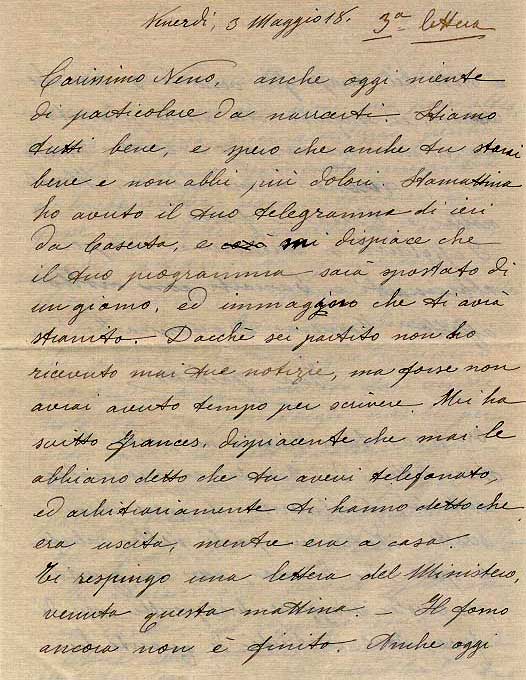 Venerdì, 3 Maggio 18. 3ª lettera
Carissimo Neno, anche oggi niente
di particolare da narrarti. Stiamo
tutti bene, e spero che anche tu starai
bene e non abbi più dolori. Stamattina
ho avuto il tuo telegramma di ieri
da Caserta, e così mi dispiace che
il tuo programma sarà spostato di
un giorno, ed immagino che ti avrà
stranito. Dacchè sei partito non ho
ricevuto mai tue notizie, ma forse non
avrai avuto tempo per scrivere. Mi ha
scritto Frances, dispiacente che mai le
abbiano detto che tu avevi telefonato,
ed arbitrariamente ti hanno detto che
era uscita, mentre era a casa.
Ti respingo una lettera del Ministero,
venuta questa mattina. — Il forno
ancora non è finito. Anche oggi